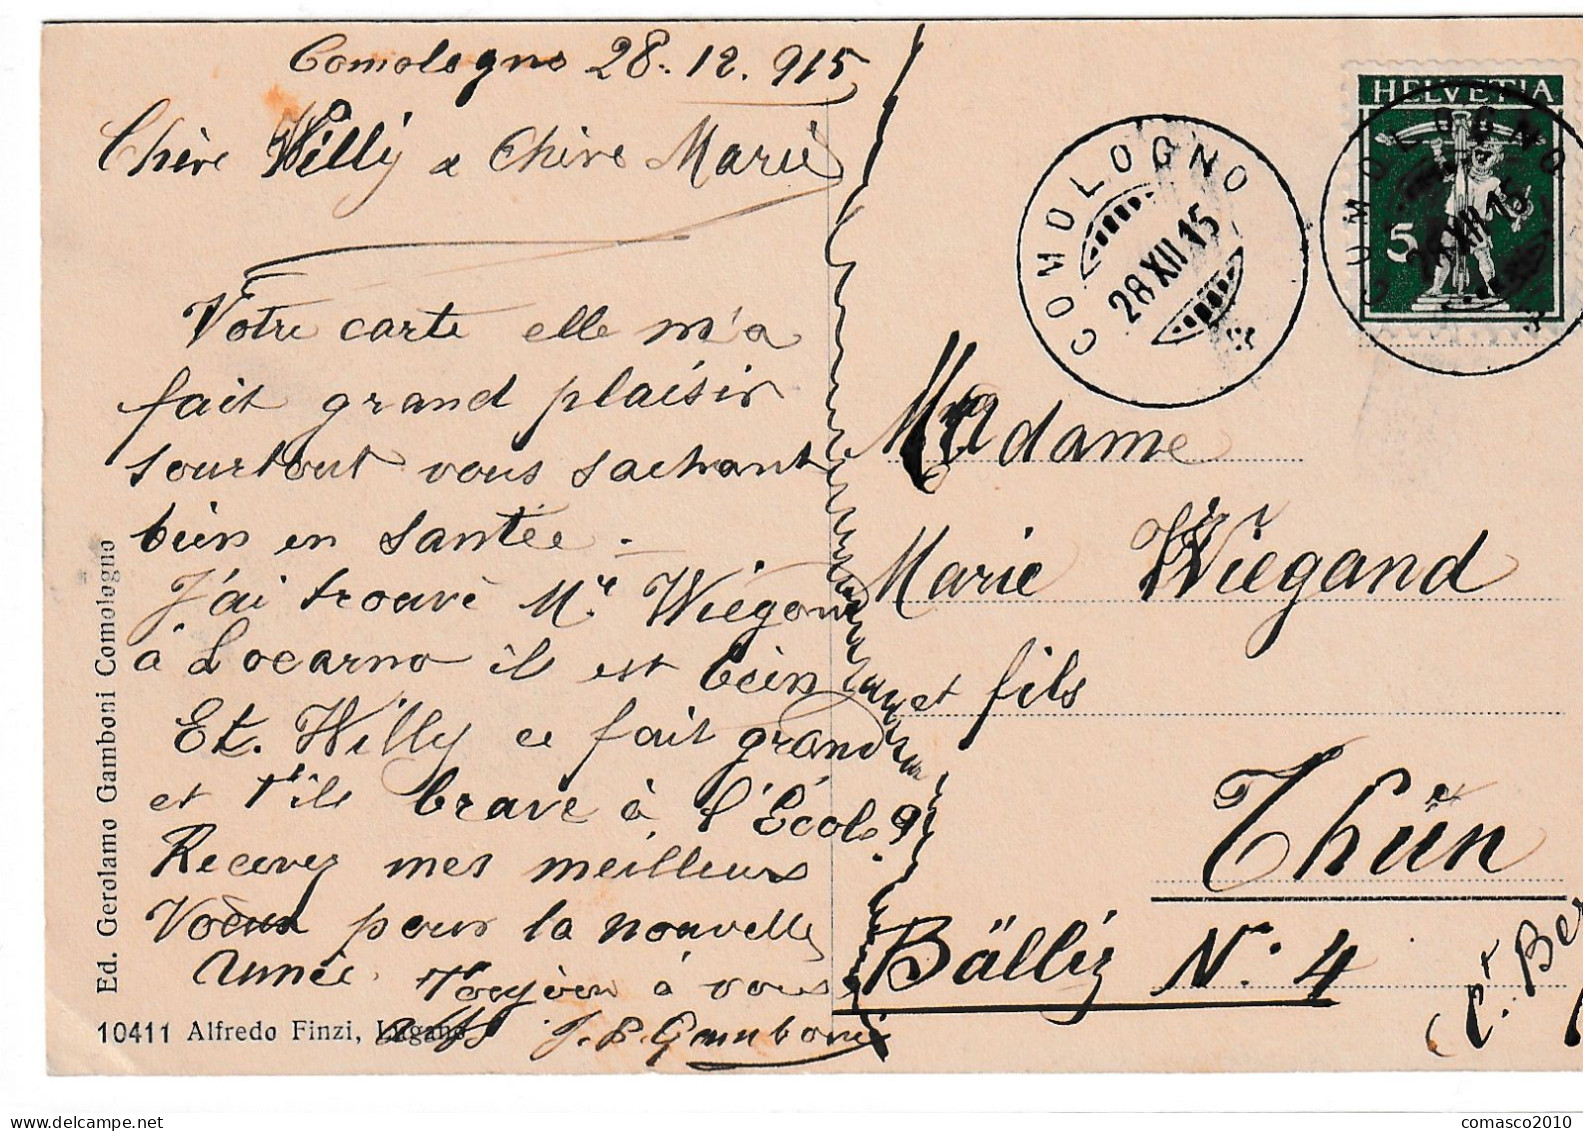 Comologno 28.12.915
Chère Willy & Chère Marie
Votre carte elle m'a
fait grand plaisir
sourtout vous sachant
bien en santée.
J'ai trouvé Mr. Wiegand
à Locarno il est bien
Et. Willy ce fait grand
et t'il brave à l'École?
Recevez mes meilleurs
Voeux pour la nouvelle
Année. à vous
J. B. Gamboni
Ed. Gerolamo Gamboni Comologno
10411 Alfredo Finzi, Lugano
HELVETIA
5
COMOLOGNO
28 XII 15
COMOLOGNO
28 XII 15
Madame
Marie Wiegand
et fils
Thün
Bälliz No. 4
(Ct. Ber
comasco2010